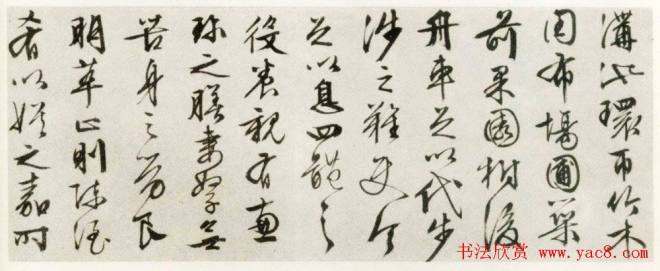 溝池環帀竹木
周布場圃築
前果園樹後
舟車足以代步
涉之難使令
足以息四體之
役養親有兼
珍之膳妻孥無
苦身之勞良
朋萃止則陳酒
肴以娛之嘉時
书法欣赏 www.yac8.com